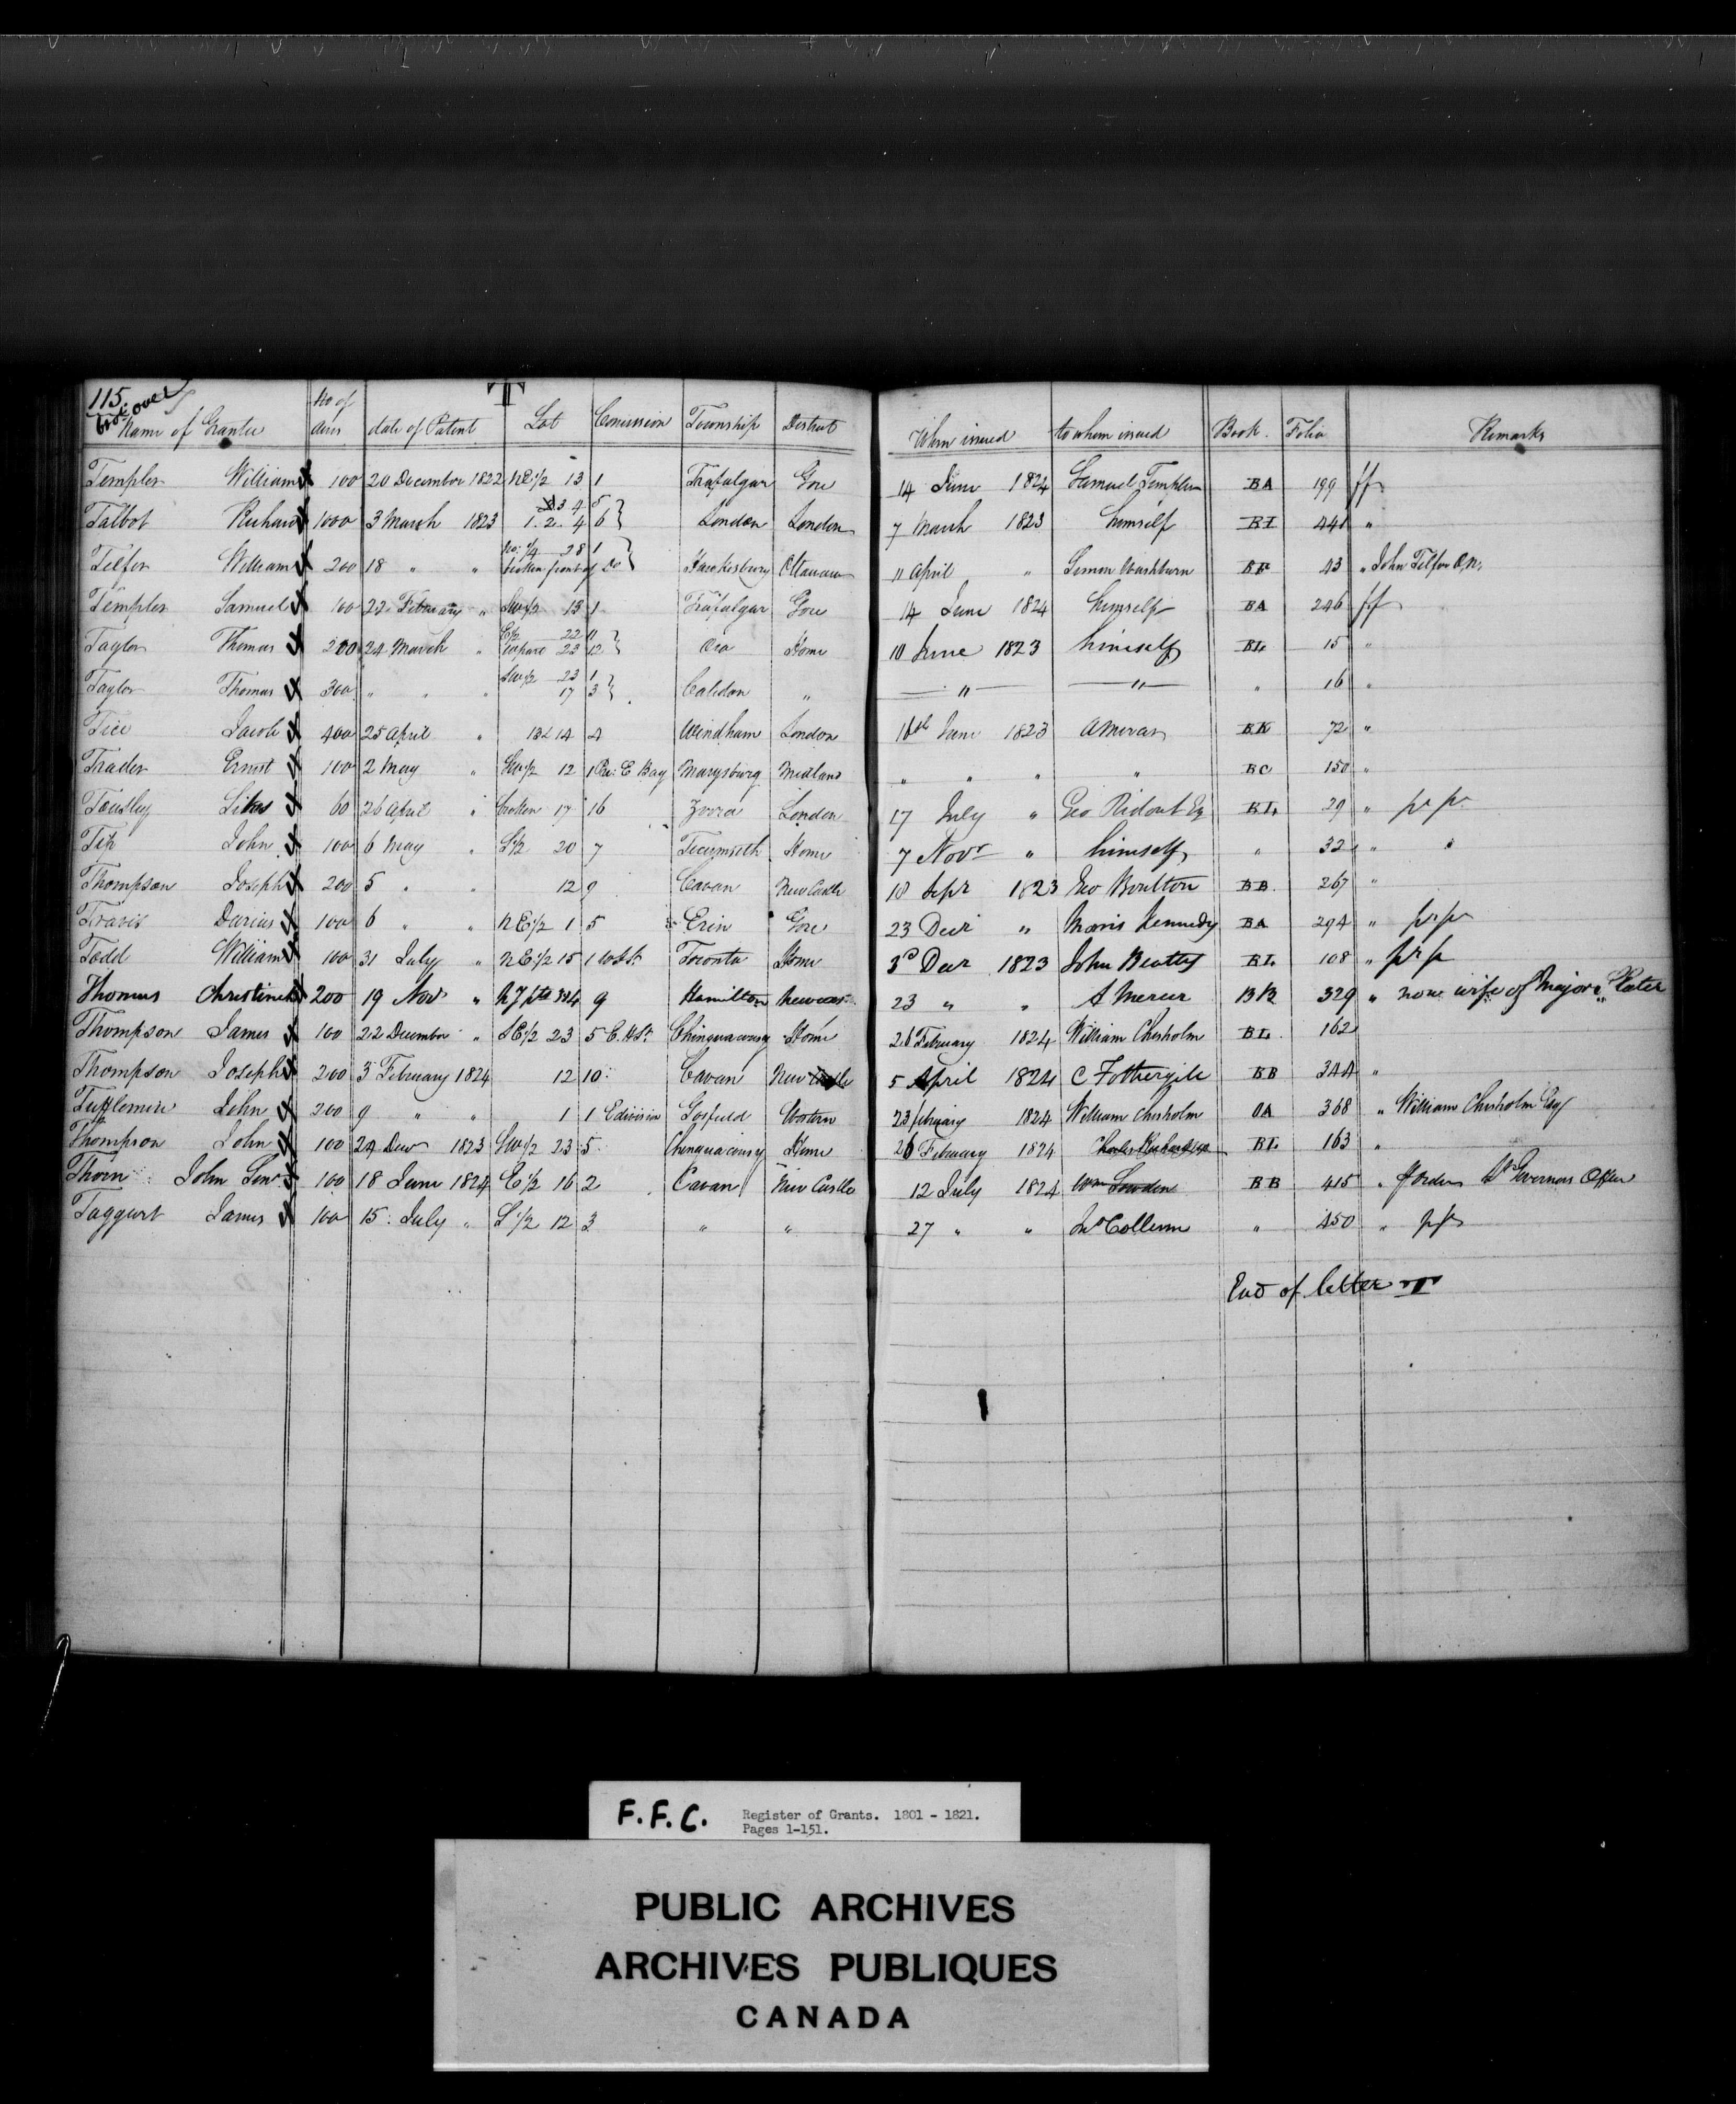 115. T
over
Name of Grantee No of Acres date of Patent Lot Concession Township District When issued to whom issued Book. Folio Remarks
Templer William 100 20 December 1822 NE 1/2 13 1 Trafalgar Gore 14 June 1824 Samuel Templer BA 199 ff
Talbot Richard 1000 3 March 1823 3 4 5 1. 2. 4 6 } London London 7 March 1823 himself BI 441 "
Telfer William 200 18 " " 28 1 broken front of Do } Hawkesbury Ottawa 11 April " Simon Washburn BF 43 " John Telfer
Templer Samuel 100 22 February " SW 1/2 13 1 Trafalgar Gore 14 June 1824 himself BA 246 ff
Taylor Thomas 200 24 March " E 1/2 22 11 23 12 } Oro Home 10 June 1823 himself BL 15 "
Taylor Thomas 300 " " " SW 1/2 23 1 17 3 } Caledon " " " " 16 "
Tice Jacob 400 25 April " 13 & 14 4 Windham London 16th June 1823 A Mercer BK 72 "
Trader Ernst 100 2 May " SW 1/2 12 1 E Bay Marysburg Midland " " " " BC 150 "
Tousley Sikes 60 26 April " broken 17 16 Zorra London 17 July " Geo Ridout Esq BL 29 " pr pr
John 100 6 May " S 1/2 20 7 Tecumseth Home 7 Novr " himself " 32 "
Thompson Joseph 200 5 " " 12 9 Cavan New Castle 18 Sepr 1823 Geo Boulton BB 267 "
Travis Darius 100 6 " " NE 1/2 1 5 Erin Gore 23 Decr " Morris Kennedy BA 294 " pr pr
Todd William 100 31 July " NE 1/2 15 1 W.H.St. Toronto Home 3d Decr 1823 John Beatty BL 108 " pr p
Thomas Christine 200 19 Novr " 9 Hamilton Newcas 23 " " A Mercer BB 329 " now wife of Major Slater
Thompson James 100 22 December " SE 1/2 23 5 E. H St. Chinguacousy Home 26 February 1824 William Chisholm BL 162
Thompson Joseph 200 3 February 1824 12 10 Cavan New Castle 5 April 1824 C Fothergill BB 344 "
John 200 9 " " 1 1 E division Gosfield Western 23 february 1824 William Chisholm OA 368 " William Chisholm Esq
Thompson John 100 24 Decr 1823 SW 1/2 23 5 Chinguacousy Home 26 February 1824 Charles Richardson BL 163 "
Thorn John Senr 100 18 June 1824 E 1/2 16 2 Cavan New Castle 12 July 1824 Wm Lowden BB 415 " order Lt Governors Office
Taggurt James 100 15 July " S 1/2 12 3 " " 27 " " Collum " 450 " pr pr
End of letter T
F.F.C. Register of Grants. 1801 - 1821.
Pages 1-151.
PUBLIC ARCHIVES
ARCHIVES PUBLIQUES
CANADA